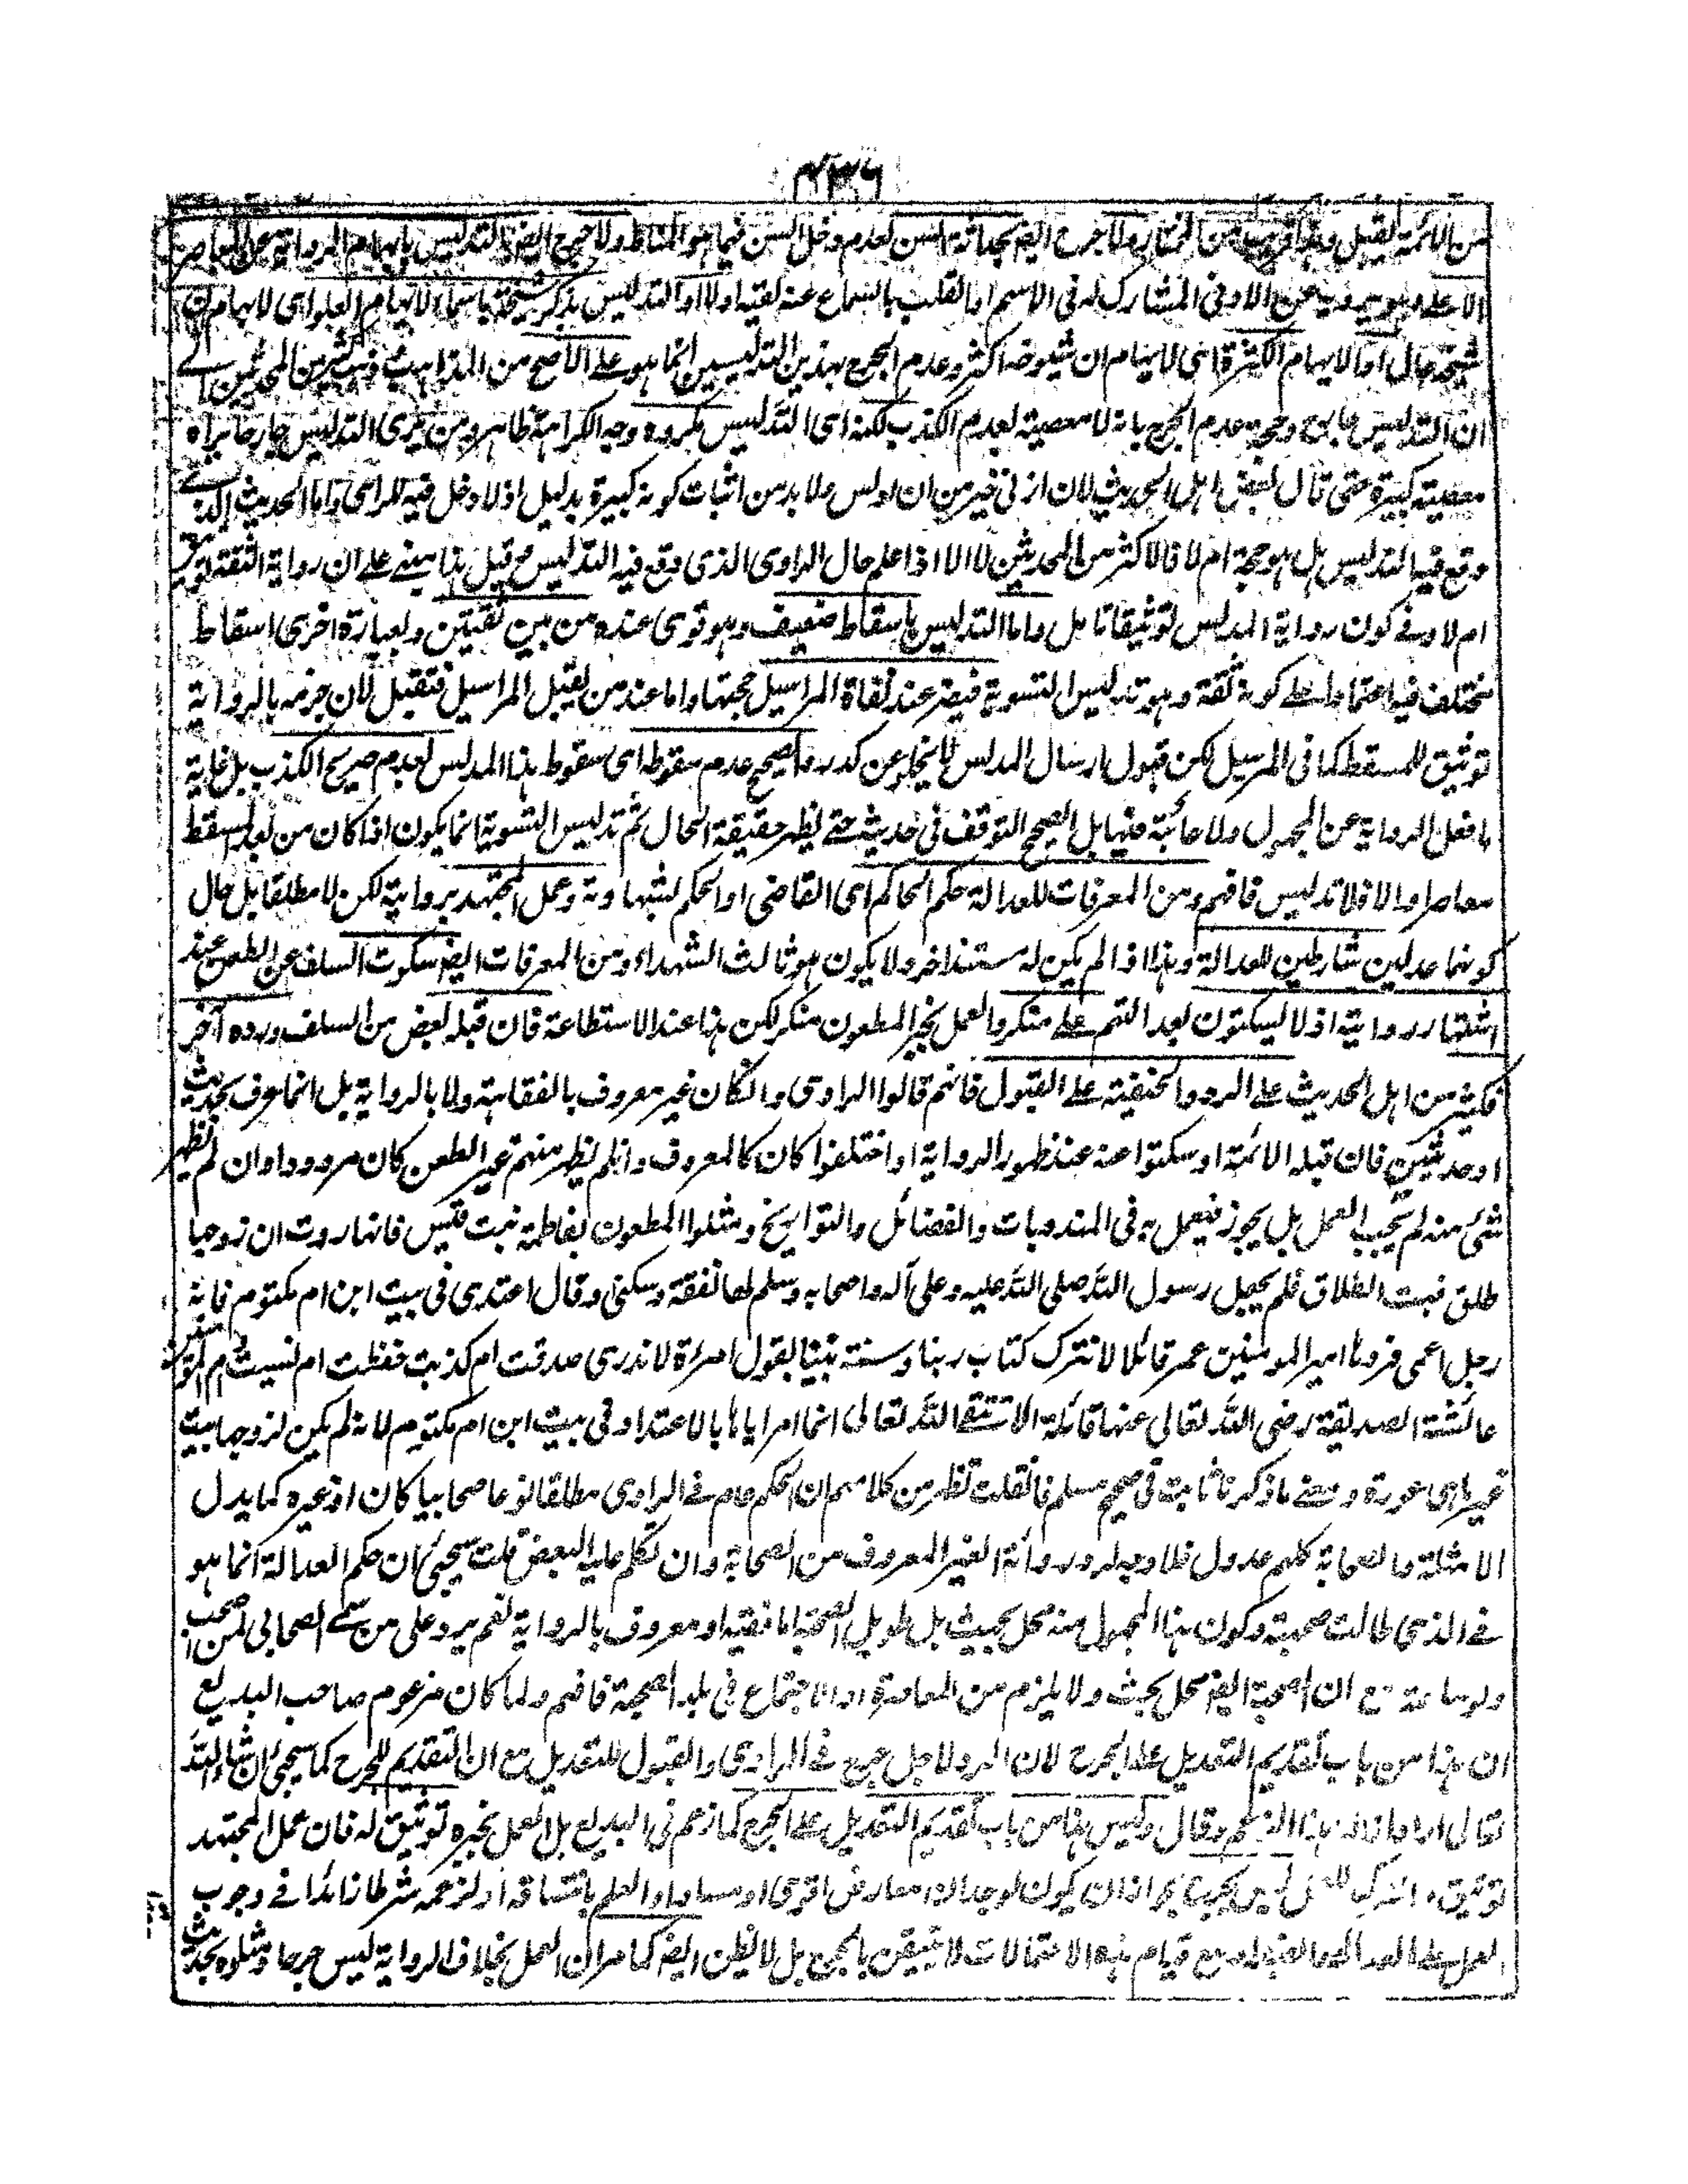 ۴۳۶
من الائمة يقبل ولا جرح ايضا بحداثة السن لعدم دخل السن فيما هو المناط ولا جرح ايضا بالتدليس بايهام الرواية عن المعاصر
الاعلى وهو يرويه عن الادنى المشارك له في الاسم او القلب بالسماع عنه لقيه اولا او التدليس بذكر شيخه باسماء لايهام العلو اى لايهام ان
شيخه عال او الايهام الكثرة اى لايهام ان شيوخه اكثر وعدم الجرح بهذين التدليسين انما هو على الاصح من المذاهب ذهب كثير من المحدثين الى
ان التدليس جارح وحجة عدم الجرح بانه لا معصية لعدم الكذب لكنه اى التدليس مكروه وجه الكراهة ظاهر ومن يرى التدليس جارحا يراه
معصية كبيرة حتى قال بعض اهل الحديث لان ازنى خير من ان ادلس ولا بد من اثبات كونه كبيرة بدليل اذ لا دخل فيه للراى واما الحديث الذى
وقع فيه التدليس هل هو حجة ام لا فالاكثر من المحدثين لا الا اذا علم حال الراوى الذى وقع فيه التدليس قيل هذا مبنى على ان رواية الثقة توثيق
ام لا وفى كون رواية المدلس توثيقا تامل واما التدليس باسقاط ضعيف وهو قوى عنده من بين ثقتين وبعبارة اخرى اسقاط
مختلف فيه اعتمادا على كونه ثقة وهو تدليس التسوية فيضر عند نفاة المراسيل حجيتها واما عند من يقبل المراسيل فتقبل لان جزمه بالرواية
توثيق للمسقط كما فى المرسيل لكن قبول ارسال المدلس لا يخلو عن كدر والصحيح عدم سقوطه اى سقوط هذا المدلس لعدم صريح الكذب بل غاية
ما فعل الرواية عن المجهول ولا عائبة فيها بل الصحيح التوقف فى حديثه حتى يظهر حقيقة الحال ثم تدليس التسوية انما يكون اذا كان من بعد المسقط
معاصرا والا فلا تدليس فافهم ومن المعرفات للعدالة حكم الحاكم اى القاضى او الحكم بشهادته وعمل المجتهد بروايته لكن لا مطلقا بل حال
كونهما عدلين شارطين للعدالة وهذا اذا لم يكن له مستند اخر ولا يكون هو ثالث الشهداء ومن المعرفات ايضا سكوت السلف عن الطعن عند
اشتهار روايته اذ لا يسكتون بعد التهم على منكر والعمل بخبر المطعون منكر لكن هذا عند الاستطاعة فان قبله بعض من السلف ورده آخر
فكثير من اهل الحديث على الرد والحنفية على القبول فانهم قالوا الراوى وان كان غير معروف بالفقاهة ولا بالرواية بل انما عرف بحديث
او حديثين فان قبله الائمة او سكتوا عنه عند ظهور الرواية او اختلفوا كان كالمعروف وان لم يظهر منهم غير الطعن كان مردودا وان لم يظهر
شئ منه لم يجب العمل بل يجوز فيعمل به فى المندوبات والفضائل والتواريخ ومثلوا المطعون بفاطمة بنت قيس فانها روت ان زوجها
طلق فبت الطلاق فلم يجعل رسول الله صلى الله عليه وعلى آله واصحابه وسلم لها نفقة وسكنى وقال اعتدى فى بيت ابن ام مكتوم فانه
رجل اعمى فردها امير المومنين عمر قائلا لا نترك كتاب ربنا وسنة نبينا بقول امراة لا ندرى صدقت ام كذبت حفظت ام نسيت وام المؤمنين
عائشة الصديقة رضى الله تعالى عنها قائلة الا تتقى الله تعالى انما امر اياها بالاعتداد فى بيت ابن ام مكتوم لانه لم يكن لزوجها بيت
غير اى عورة ومعنى ما ذكرنا ثابت فى صحيح مسلم فان قلت تظهر من كلامهم ان الحكم عام فى الراوى مطلقا نوعا صحابيا كان او غيره كما يدل
الامثلة والصحابة كلهم عدول فلا وجه لرد رواية الغير المعروف من الصحابة وان تكلم عليه البعض قلت سيجئ ان حكم العدالة انما هو
فى الذى طالت صحبته وكون هذا المجهول منه محل بحيث بل طويل الصحبة اما فقيه او معروف بالرواية نعم يرد على من سمى الصحابى لمن اصحب
ولو ساعة مع ان الصحبة ايضا محل بحث ولا يلزم من المعاصرة او الاجتماع فى بلد الصحبة فافهم ولما كان مزعوم صاحب البديع
ان هذا من باب تقديم التعديل على الجرح لان الرد لاجل جرح فى الراوى والقبول للتعديل مع ان التقديم للجرح كما سيجئ ان شاء الله
تعالى اراد ازالة هذا الزعم وقال وليس هذا من باب تقديم التعديل على الجرح كما زعم فى البديع بل العمل بخبره توثيق له فان عمل المجتهد
توثيق والترك للعمل ليس بجرح لجواز ان يكون لوجدان معارض اقوى او مساو او العلم بانتساقه او لزعمه شرطا زائدا فى وجوب
العمل على العدالة والضبط ومع قيام هذه الاحتمالات لا تيقن بالجرح بل لا يظن ايضا كما مر ان العمل بخلاف الرواية ليس جرحا ومثلوه بحديث